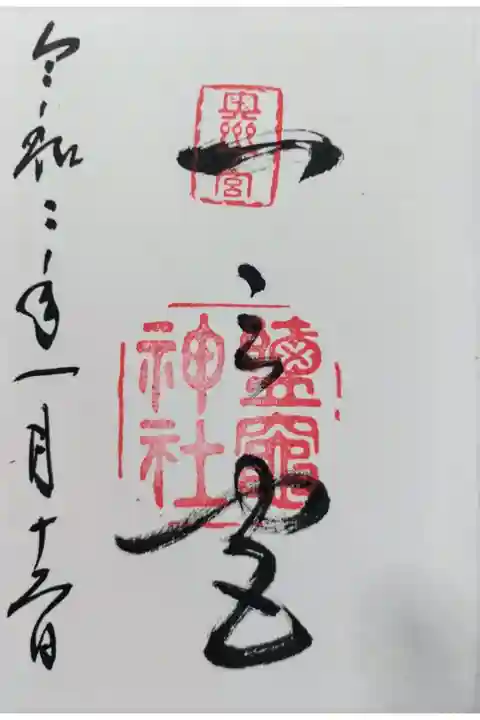 奥州一宮
一之宮
鹽竈
神社
令和二年一月十六日